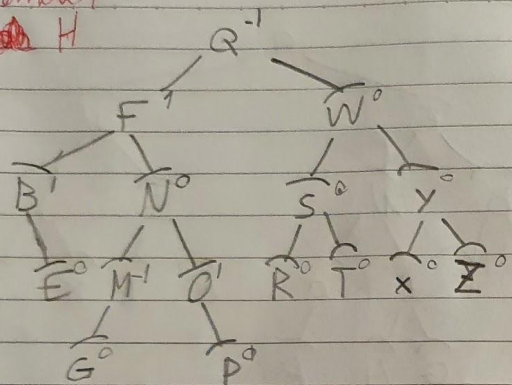 H
Q⁻¹
F¹ W⁰
B¹ N⁰ S⁰ Y⁰
E⁰ M⁻¹ O¹ R⁰ T⁰ X⁰ Z⁰
G⁰ P⁰